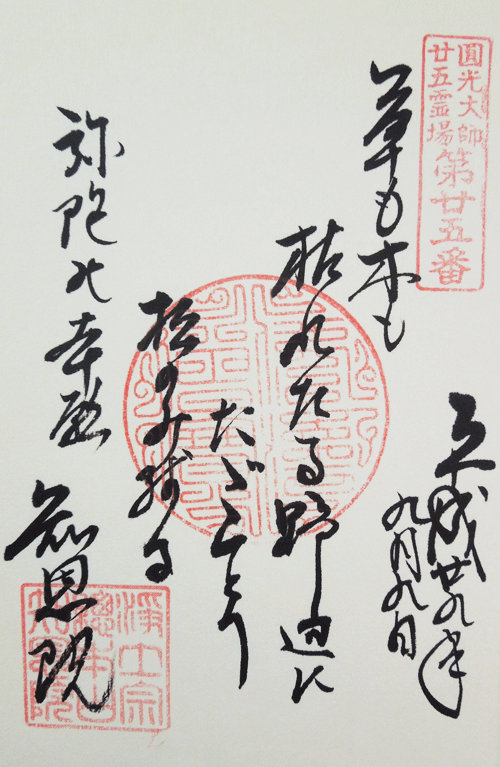 圓光大師
廿五霊場
第廿五番
平成廿九年
九月九日
草も木も
枯れたる野辺に
たゞひとり
松のみ残る
弥陀の本願
知恩院
淨土宗
總本山
知恩院